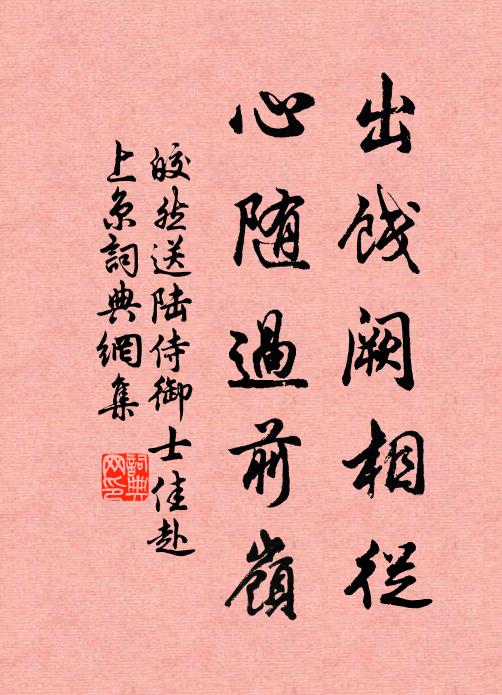 出餞阙相從
心随過前嶺
皎然送陆侍御士佳赴
上京詞典網集
詞典
网印